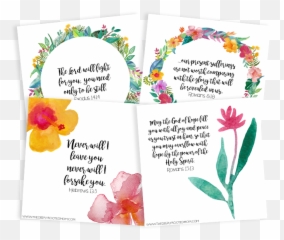 The Lord will fight
for you, you need
only to be still.
Exodus 14:14
our present sufferings
are not worth comparing
with the glory that will
be revealed in us.
Romans 8:18
Never will I
leave you
never will I
forsake you.
Hebrews 13:5
May the God of hope fill
you with all joy and peace
as you trust in him, so that
you may overflow with
hope by the power of the
Holy Spirit.
Romans 15:13